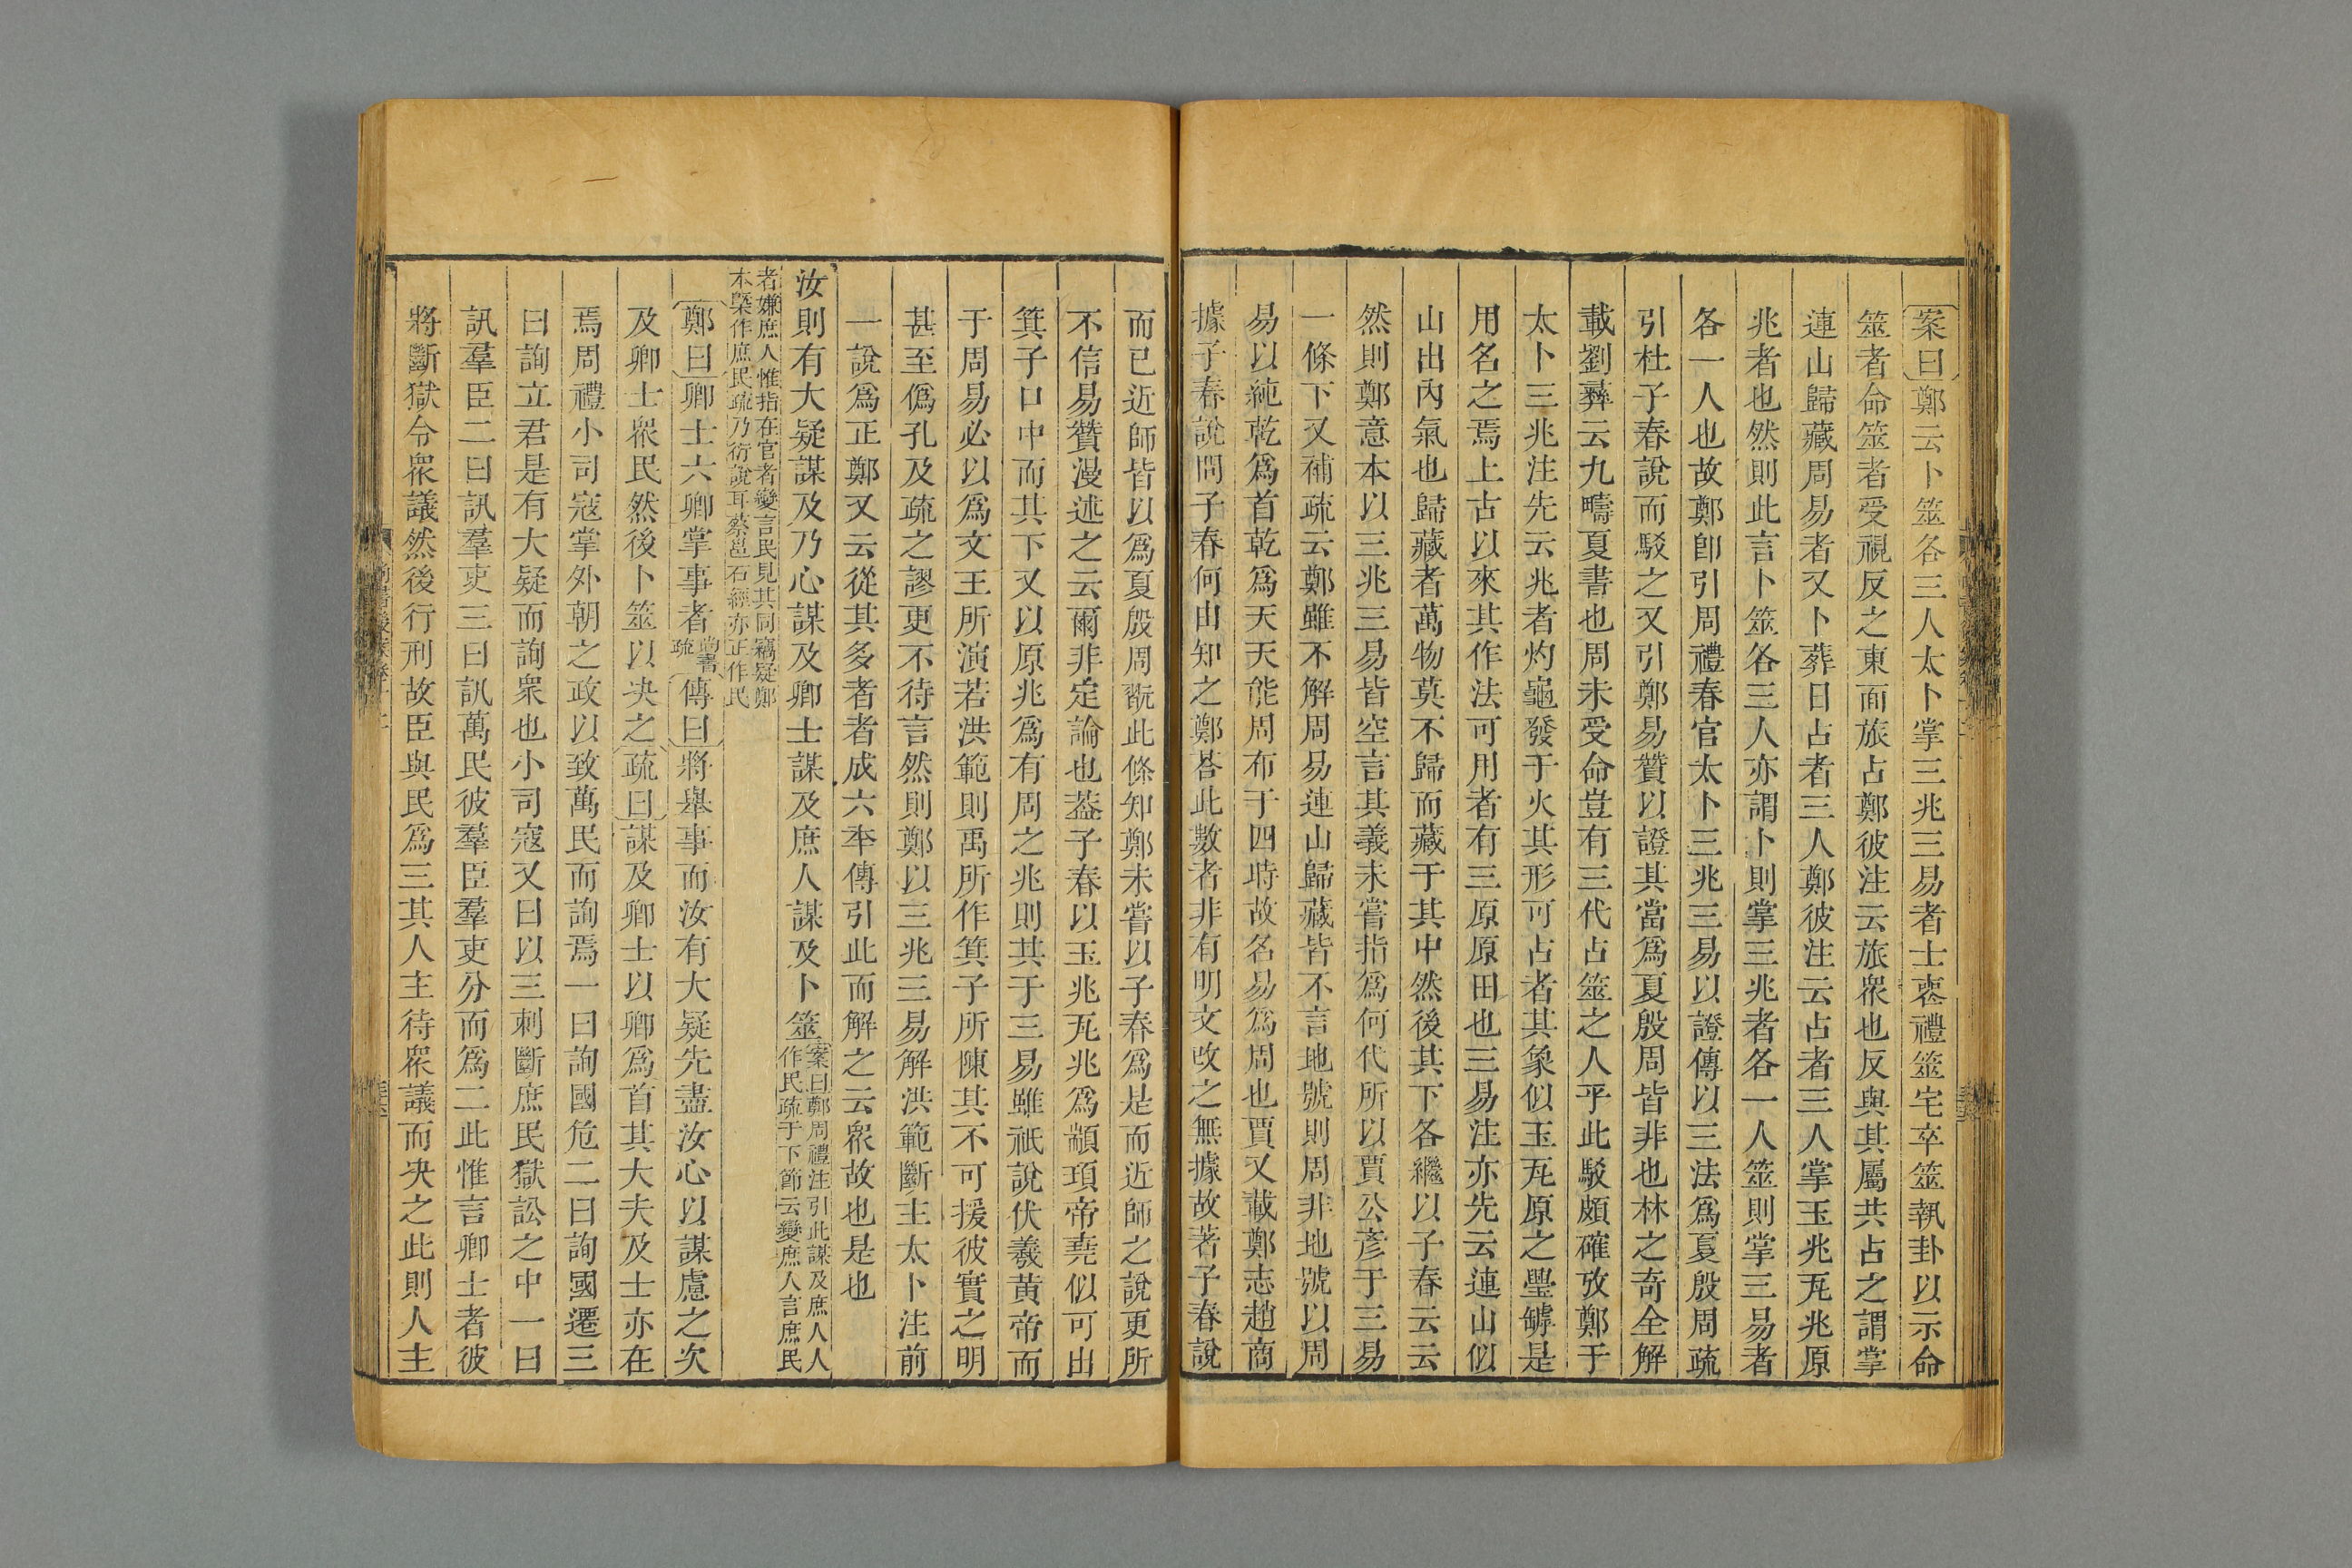 案曰鄭云卜筮各三人太卜掌三兆三易者士喪禮筮宅卒筮執卦以示命
筮者命筮者受視反之東面旅占鄭彼注云旅衆也反與其屬共占之謂掌
連山歸藏周易者又卜葬日占者三人鄭彼注云占者三人掌玉兆瓦兆原
兆者也然則此言卜筮各三人亦謂卜則掌三兆者各一人筮則掌三易者
各一人也故鄭卽引周禮春官太卜三兆三易以證傳以三法爲夏殷周疏
引杜子春說而駁之又引鄭易贊以證其當爲夏殷周皆非也林之奇全解
載劉彝云九疇夏書也周未受命豈有三代占筮之人乎此駁頗確攷鄭于
太卜三兆注先云兆者灼龜發于火其形可占者其象似玉瓦原之璺罅是
用名之焉上古以來其作法可用者有三原原田也三易注亦先云連山似
山出內氣也歸藏者萬物莫不歸而藏于其中然後其下各繼以子春云云
然則鄭意本以三兆三易皆空言其義未嘗指爲何代所以賈公彥于三易
一條下又補疏云鄭雖不解周易連山歸藏皆不言地號則周非地號以周
易以純乾爲首乾爲天天能周布于四時故名易爲周也賈又載鄭志趙商
據子春說問子春何由知之鄭荅此數者非有明文改之無據故著子春說
而已近師皆以爲夏殷周翫此條知鄭未嘗以子春爲是而近師之說更所
不信易贊漫述之云爾非定論也葢子春以玉兆瓦兆爲顓頊帝堯似可出
箕子口中而其下又以原兆爲有周之兆則其于三易雖祇說伏羲黃帝而
于周易必以爲文王所演若洪範則禹所作箕子所陳其不可援彼實之明
甚至僞孔及疏之謬更不待言然則鄭以三兆三易解洪範斷主太卜注前
一說爲正鄭又云從其多者者成六年傳引此而解之云衆故也是也
汝則有大疑謀及乃心謀及卿士謀及庶人謀及卜筮案曰鄭周禮注引此謀及庶人人
作民疏于下節云變庶人言庶民
者嫌庶人惟指在官者變言民見其同竊疑鄭
本槩作庶民疏乃衍說耳蔡邕石經亦正作民
鄭曰卿士六卿掌事者尚書疏傳曰將舉事而汝有大疑先盡汝心以謀慮之次
及卿士衆民然後卜筮以决之疏曰謀及卿士以卿爲首其大夫及士亦在
焉周禮小司寇掌外朝之政以致萬民而詢焉一曰詢國危二曰詢國遷三
曰詢立君是有大疑而詢衆也小司寇又曰以三刺斷庶民獄訟之中一曰
訊羣臣二曰訊羣吏三曰訊萬民彼羣臣羣吏分而爲二此惟言卿士者彼
將斷獄令衆議然後行刑故臣與民爲三其人主待衆議而决之此則人主